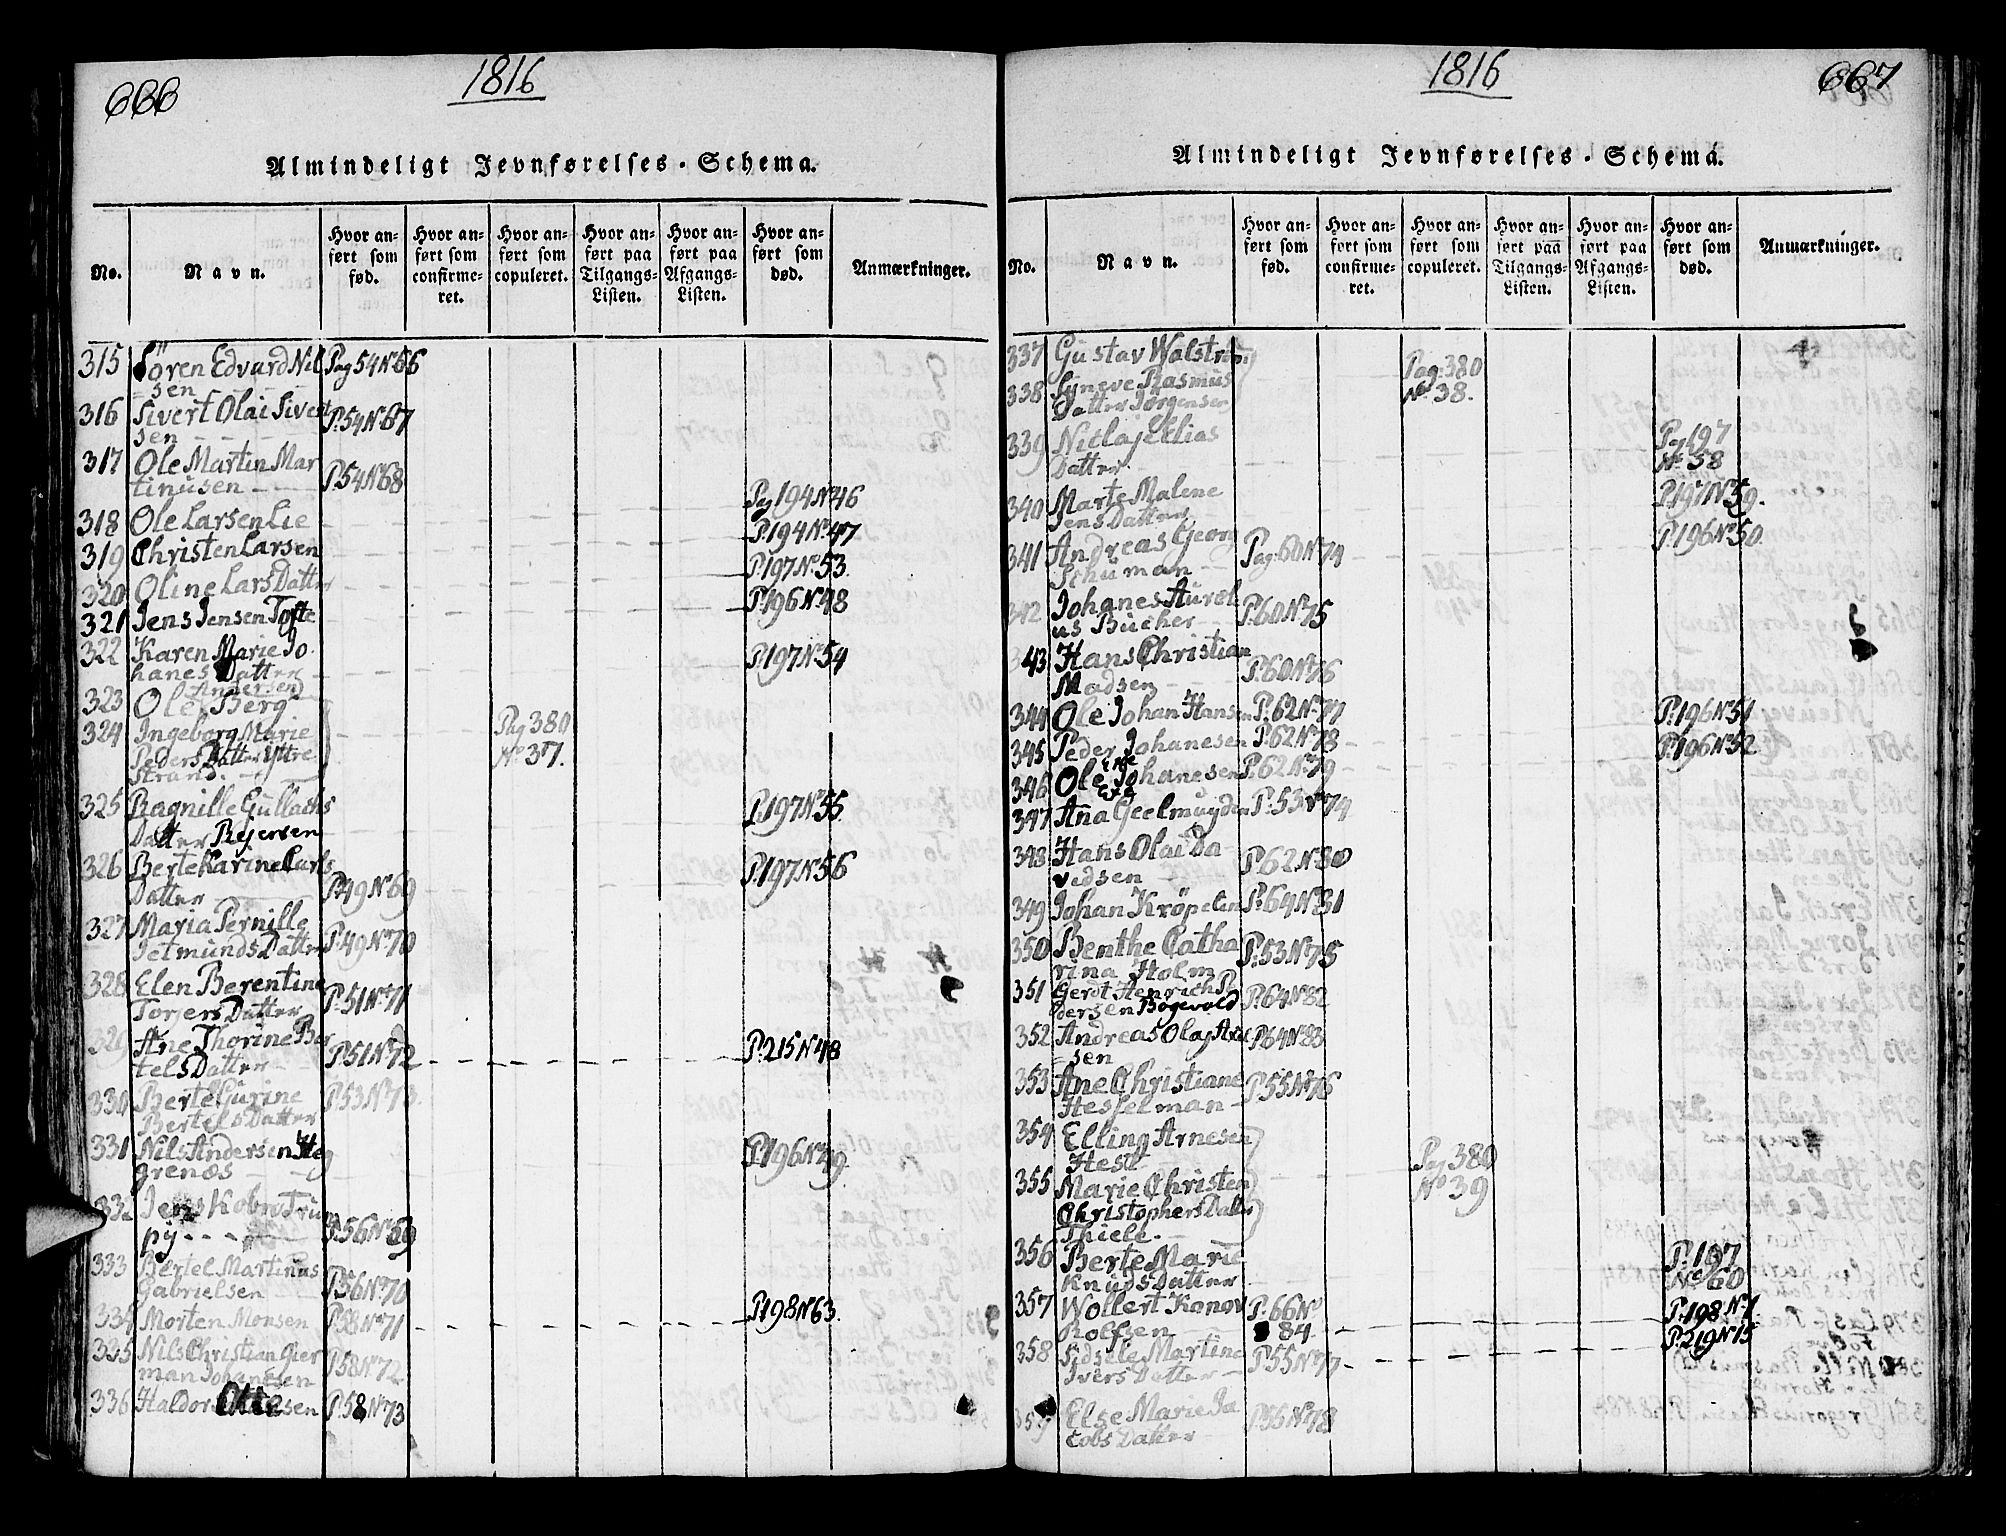 666
1816
Almindeligt Jevnførelses-Schema.
No.
Navn.
Hvor anført som fød.
Hvor anført som confirmeret.
Hvor anført som copuleret.
Hvor anført paa Tilgangs-Listen.
Hvor anført paa Afgangs-Listen.
Hvor anført som død.
Anmærkninger.
315 Sören Edvard Nil Pag 54 No 66
=sen
316 Sivert Olai Sivert P. 54 No 67
sen
317 Ole Martin Mar P. 54 No 68
tinusen
318 Ole Larsen Lie Pag 194 No 46
319 Christen Larsen P. 194 No 47
320 Oline Lars Datter P. 197 No 53
321 Jens Jensen Tofte P. 196 No 48
322 Karen Marie Jo
hanes Datter P. 197 No 54
Andersen
323 Ole Berg
324 Ingeborg Marie Pag 380
Peders Datter Yttre No 37.
Strand.
325 Ragnille Gullachs P. 197 No 55
Datter Rejersen
326 Berte Karine Carls P. 197 No 56
Datter P. 49 No 69
327 Maria Pernille
Jetmunds Datter P. 49 No 70
328 Elen Berentine
Torjers Datter P. 51 No 71
329 Ane Thorine Ber
tels Datter P. 51 No 72 P. 215 No 48
330 Berte Gurine P. 53 No 73
Bertels Datter
331 Nils Andersen Heg P. 196 No 49
grenæs
332 Jens Kobro Trum
py P. 56 No 69
333 Bertel Martinus
Gabrielsen P. 56 No 70
334 Morten Monsen P. 58 No 71 P. 198 No 63
335 Nils Christian Gier
man Johanesen P. 58 No 72
336 Haldor Olesen P. 58 No 73
1816
667
Almindeligt Jevnførelses-Schema.
No.
Navn.
Hvor anført som fød.
Hvor anført som confirmeret.
Hvor anført som copuleret.
Hvor anført paa Tilgangs-Listen.
Hvor anført paa Afgangs-Listen.
Hvor anført som død.
Anmærkninger.
337 Gustav Walström
338 Syneve Rasmus Pag. 380
Datter Jörgensen No 38.
339 Niclaje Elias Pag 197
Datter No 58
340 Marte Malene P. 197 No 59.
Jens Datter
341 Andreas Georg Pag. 60 No 74 P. 196 No 50
Schuman
342 Johanes Aureli
us Bucher P. 60 No 75
43 Hans Christian
Madsen P. 60 No 76
344 Ole Johan Hansen P. 62 No 77 P. 196 No 51
345 Peder Johanesen P. 62 No 78 P. 196 No 52
346 Ole Johanesen P. 62 No 79
347 Ana Geelmuyden P. 53 No 74
348 Hans Olai Da
vidsen P. 62 No 80
349 Johan Kröpelin P. 64 No 81
350 Benthe Catha
rina Holm P. 53 No 75
351 Gerdt Henrich Pe
dersen Bögevold P. 64 No 82
352 Andreas Olaj P. 64 No 83
=sen
353 Ane Christiane P. 55 No 76
Hesselman
354 Elling Arnesen
Hest Pag 380
355 Marie Christen No 39
Christophers Datter
Thiele.
356 Berte Marie P. 197
Knuds Datter No 60
357 Wollert Konov P. 66 No P. 198 No 1
Rolfsen 84. P. 219 No 15
358 Sidsele Martine P. 55 No 77
Ivers Datter
359 Else Marie Ja P. 55 No 78
cobs Datter